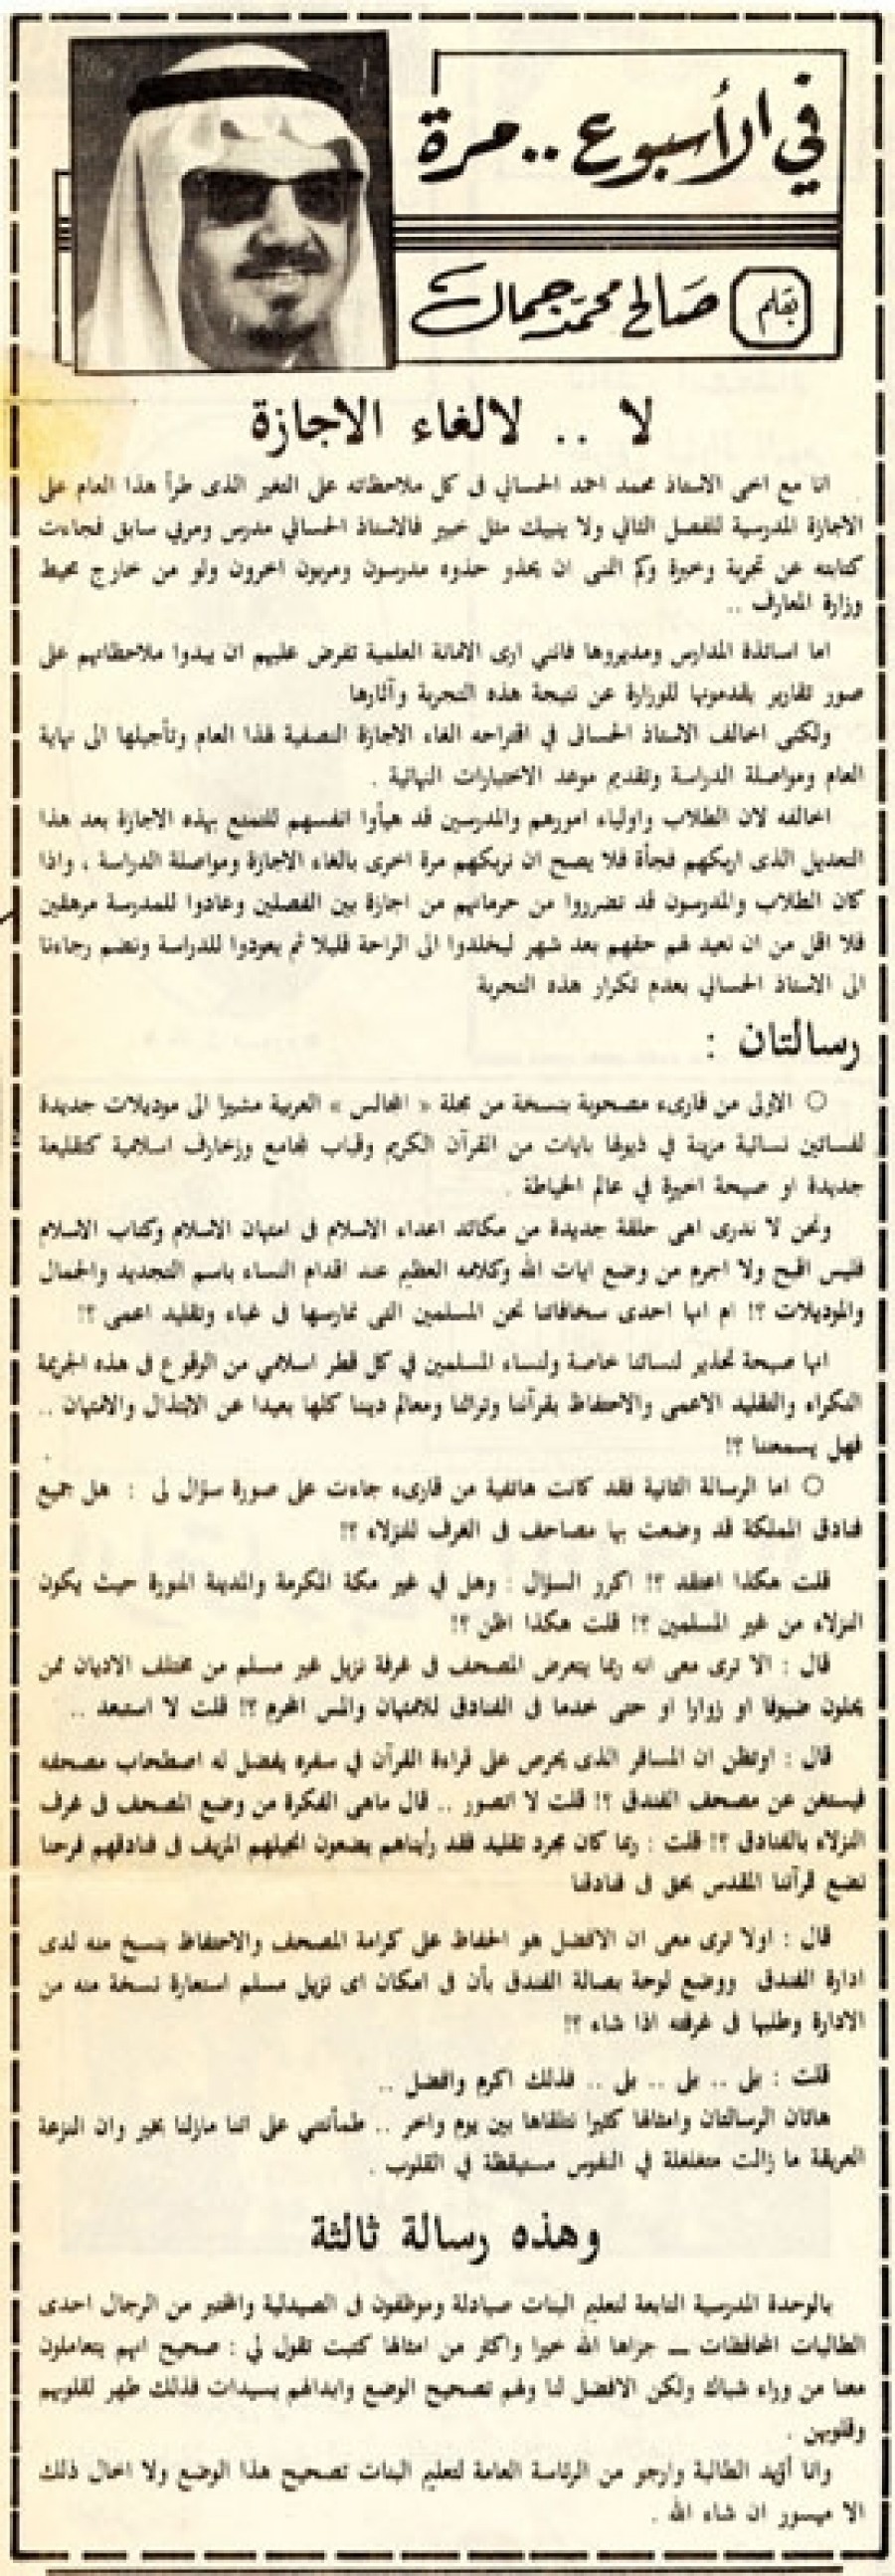 في الأسبوع .. مرة
بقلم
صالح محمد جمال
لا .. لالغاء الاجازة
انا مع اخى الاستاذ محمد احمد الحساني فى كل ملاحظاته على التغير الذى طرأ هذا العام على
الاجازة المدرسية للفصل الثاني ولا ينبيك مثل خبير فالاستاذ الحساني مدرس ومربي سابق فجاءت
كتابته عن تجربة وخبرة وكم اتمنى ان يحذو حذوه مدرسون ومربون اخرون ولو من خارج محيط
وزارة المعارف ..
اما اساتذة المدارس ومديروها فانني ارى الامانة العلمية تفرض عليهم ان يبدوا ملاحظاتهم على
صور تقارير يقدمونها للوزارة عن نتيجة هذه التجربة وآثارها
ولكنى اخالف الاستاذ الحسانى في اقتراحه الغاء الاجازة النصفية لهذا العام وتأجيلها الى نهاية
العام ومواصلة الدراسة وتقديم موعد الاختبارات النهائية .
اخالفه لان الطلاب واولياء امورهم والمدرسين قد هيأوا انفسهم للتمتع بهذه الاجازة بعد هذا
التعديل الذى اربكهم فجأة فلا يصح ان نربكهم مرة اخرى بالغاء الاجازة ومواصلة الدراسة ، واذا
كان الطلاب والمدرسون قد تضرروا من حرمانهم من اجازة بين الفصلين وعادوا للمدرسة مرهقين
فلا اقل من ان نعيد لهم حقهم بعد شهر ليخلدوا الى الراحة قليلا ثم يعودوا للدراسة ونضم رجاءنا
الى الاستاذ الحساني بعدم تكرار هذه التجربة
رسالتان :
○ الاولى من قارىء مصحوبة بنسخة من مجلة « المجالس » العربية مشيرا الى موديلات جديدة
لفساتين نسائية مزينة في ذيولها بايات من القرآن الكريم وقباب مجامع وزخارف اسلامية كتقليعة
جديدة او صيحة اخيرة في عالم الخياطة .
ونحن لا ندرى اهى حلقة جديدة من مكائد اعداء الاسلام فى امتهان الاسلام وكتاب الاسلام
فليس اقبح ولا اجرم من وضع ايات الله وكلامه العظيم عند اقدام النساء باسم التجديد والجمال
والموديلات ؟! ام انها احدى سخافاتنا نحن المسلمين التى نمارسها فى غباء وتقليد اعمى ؟!
انها صيحة تحذير لنسائنا خاصة ولنساء المسلمين في كل قطر اسلامي من الوقوع فى هذه الجريمة
النكراء والتقليد الاعمى والاحتفاظ بقرآننا وتراثنا ومعالم ديننا كلها بعيدا عن الابتذال والامتهان ..
فهل يسمعننا ؟!
○ اما الرسالة الثانية فقد كانت هاتفية من قارىء جاءت على صورة سؤال لى : هل جميع
فنادق المملكة قد وضعت بها مصاحف فى الغرف للنزلاء ؟!
قلت هكذا اعتقد ؟! اكرر السؤال : وهل في غير مكة المكرمة والمدينة المنورة حيث يكون
النزلاء من غير المسلمين ؟! قلت هكذا اظن ؟!
قال : الا ترى معى انه ربما يتعرض المصحف فى غرفة نزيل غير مسلم من مختلف الاديان ممن
يحلون ضيوفا او زوارا او حتى خدما فى الفنادق للامتهان والمس المحرم ؟! قلت لا استبعد ..
قال : اوتظن ان المسافر الذى يحرص على قراءة القرآن في سفره يفضل له اصطحاب مصحفه
فيستغن عن مصحف الفندق ؟! قلت لا اتصور .. قال ماهى الفكرة من وضع المصحف فى غرف
النزلاء بالفنادق ؟! قلت : ربما كان مجرد تقليد فقد رأيناهم يضعون انجيلهم المزيف فى فنادقهم فرحنا
نضع قرآننا المقدس بحق فى فنادقنا
قال : اولا ترى معى ان الافضل هو الحفاظ على كرامة المصحف والاحتفاظ بنسخ منه لدى
ادارة الفندق ووضع لوحة بصالة الفندق بأن فى امكان اى نزيل مسلم استعارة نسخة منه من
الادارة وطلبها فى غرفته اذا شاء ؟!
قلت : بلى .. بلى .. بلى .. فذلك اكرم وافضل ..
هاتان الرسالتان وامثالها كثيرا نتلقاها بين يوم واخر .. طمأنتني على اننا مازلنا بخير وان النزعة
العريقة ما زالت متغلغلة في النفوس مستيقظة في القلوب .
وهذه رسالة ثالثة
بالوحدة المدرسية التابعة لتعليم البنات صيادلة وموظفون فى الصيدلية والمختبر من الرجال احدى
الطالبات المحافظات ــ جزاها الله خيرا واكثر من امثالها كتبت تقول لي : صحيح انهم يتعاملون
معنا من وراء شباك ولكن الافضل لنا ولهم تصحيح الوضع وابدالهم بسيدات فذلك طهر لقلوبهم
وقلوبهن .
وانا أؤيد الطالبة وارجو من الرئاسة العامة لتعليم البنات تصحيح هذا الوضع ولا اخال ذلك
الا ميسور ان شاء الله .